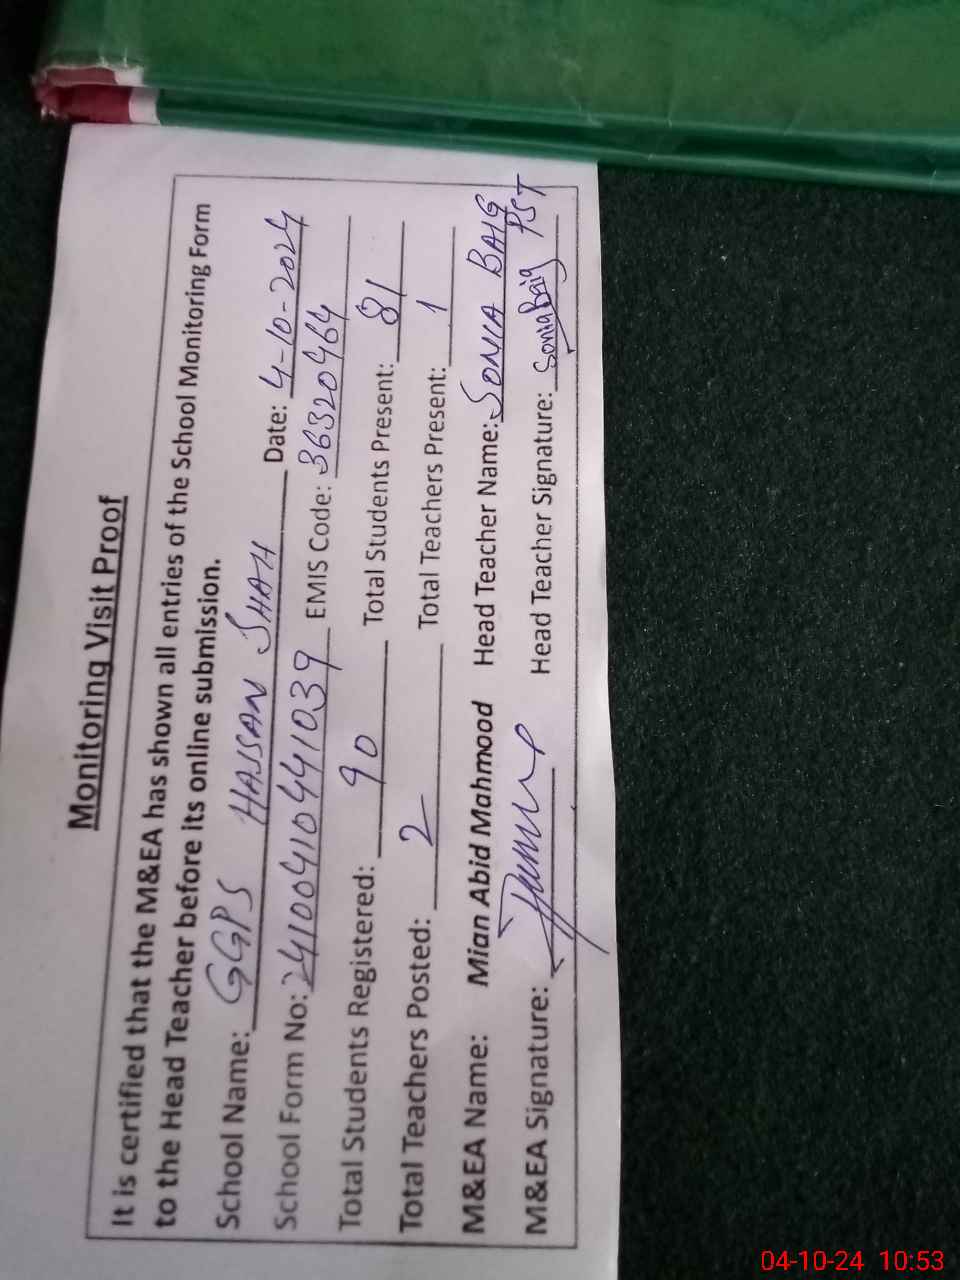 Monitoring Visit Proof
It is certified that the M&EA has shown all entries of the School Monitoring Form
to the Head Teacher before its online submission.
School Name: GGPS HASSAN SHAH Date: 4-10-2024
School Form No: 2410041041039 EMIS Code: 36320464
Total Students Registered: 90 Total Students Present: 81
Total Teachers Posted: 2 Total Teachers Present: 1
M&EA Name: Mian Abid Mahmood Head Teacher Name: SONIA BAIG
M&EA Signature: Head Teacher Signature: Sonia Baig PST
04-10-24 10:53